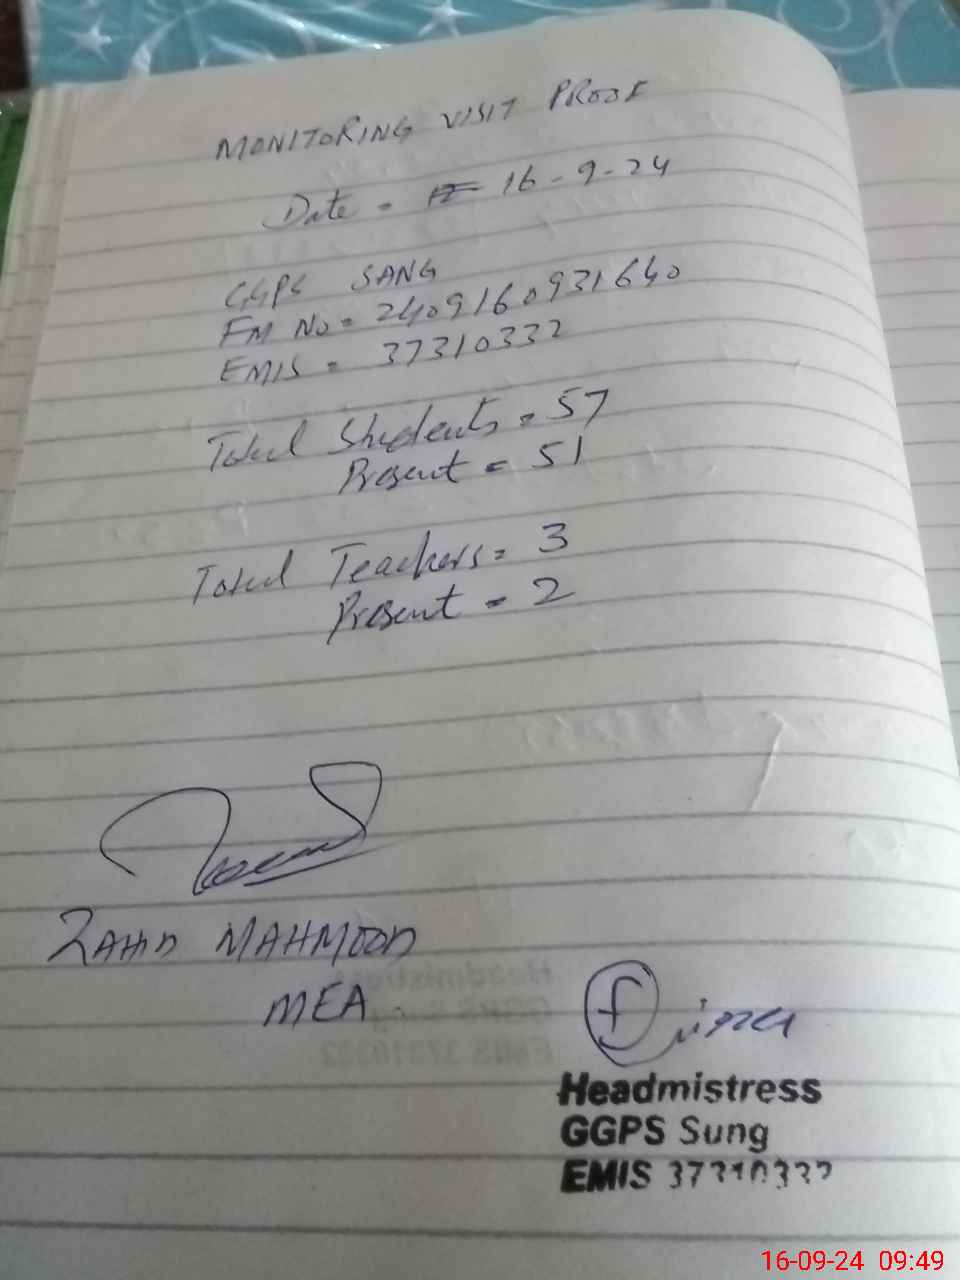 MONITORING VISIT PROOF
Date = 16-9-24
GGPS SANG
FM No = 2409160931640
EMIS = 37310332
Total Students = 57
Present = 51
Total Teachers = 3
Present = 2
ZAHID MAHMOOD
MEA
Headmistress
GGPS Sung
EMIS 37310332
16-09-24 09:49